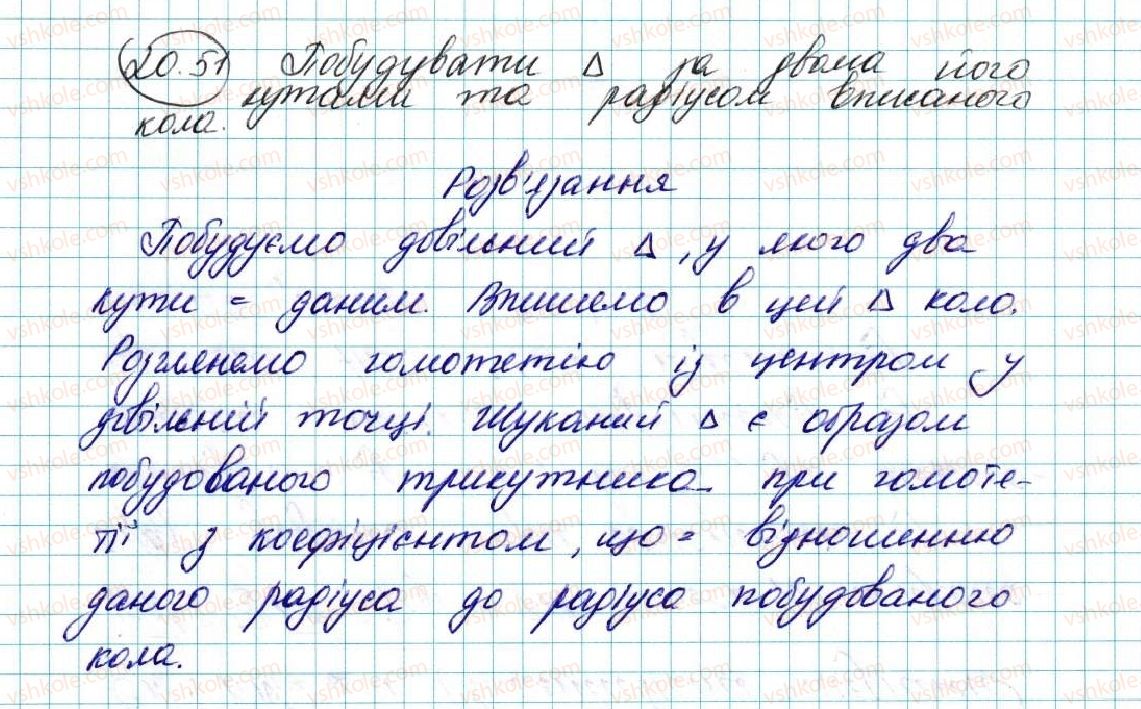 20.51 Побудувати Δ за двома його
кутами та радіусом вписаного
кола.
Розв'язання
Побудуємо довільний Δ, у якого два
кути = даним. Впишемо в цей Δ коло.
Розглянемо гомотетію із центром у
довільній точці. Шуканий Δ є образом
побудованого трикутника при гомоте-
тії з коефіцієнтом, що = відношенню
даного радіуса до радіуса побудованого
кола.
vshkole.com